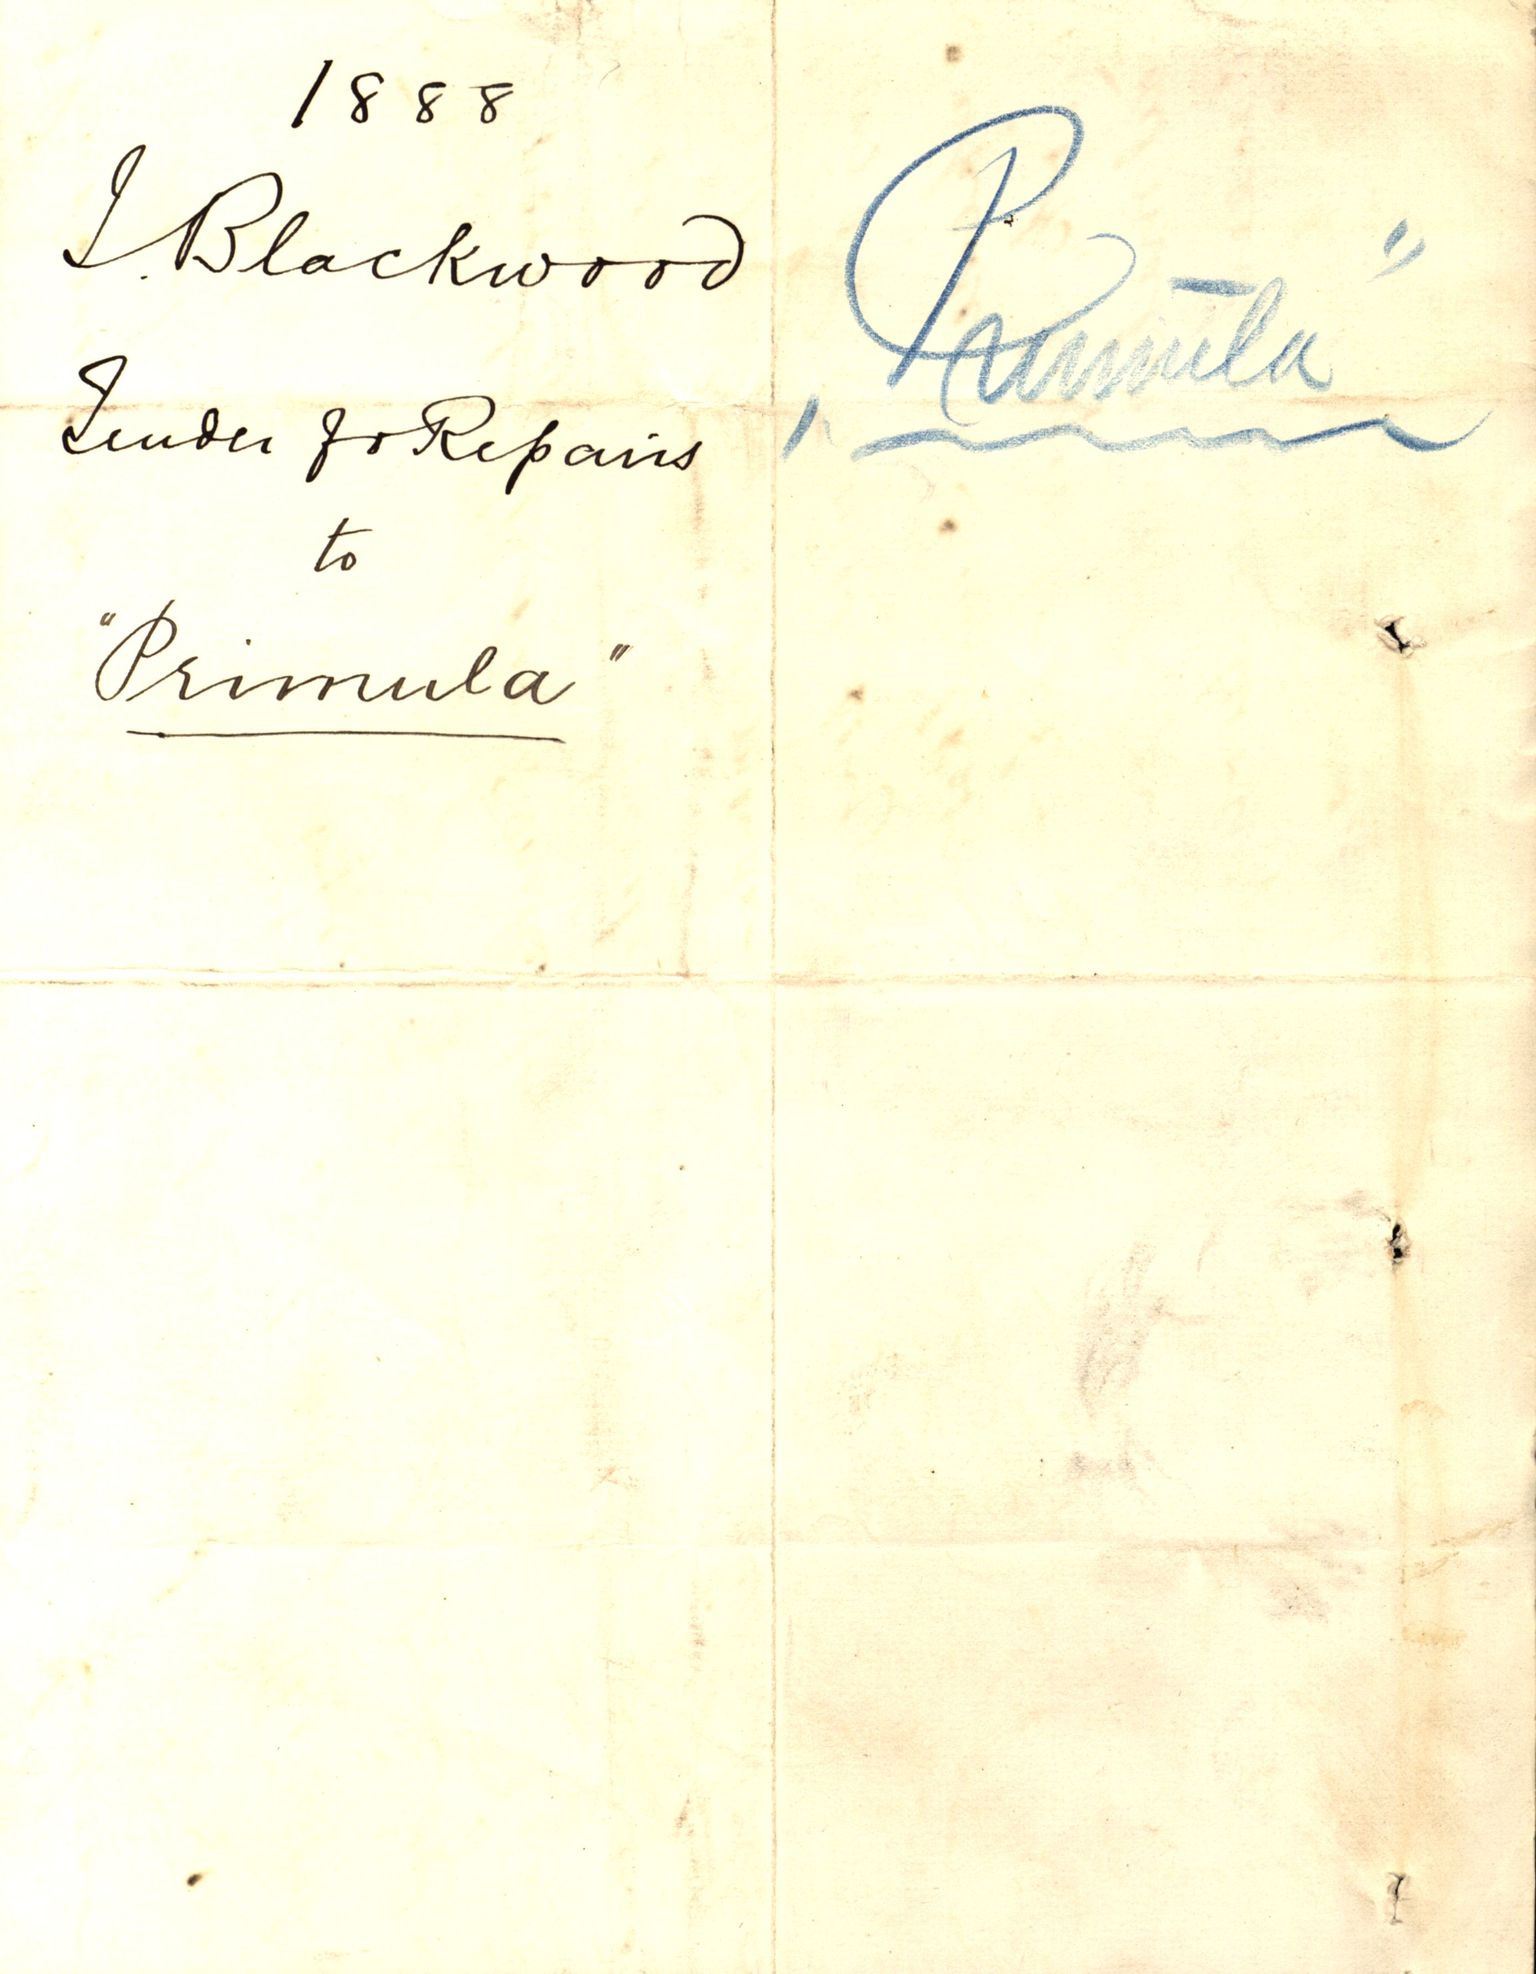 1888
J. Blackwood
Tender for Repairs
to
"Primula"
"Primula"